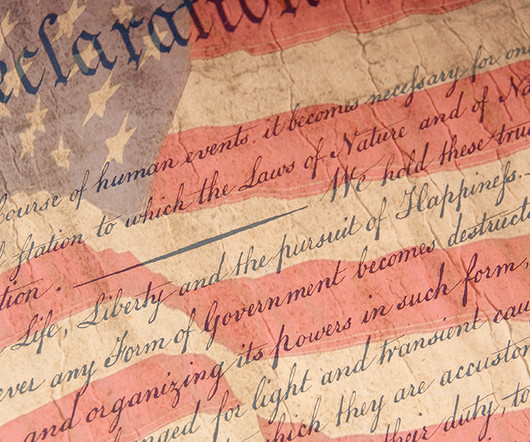 eclaration
Course of human events, it becomes necessary for on
station to which the Laws of Nature and of Na
tion. — We hold these tru
Life, Liberty and the pursuit of Happiness. –
ever any Form of Government becomes destruct
and organizing its powers in such form,
anged for light and transient cau
hich they are accustom
their duty, to